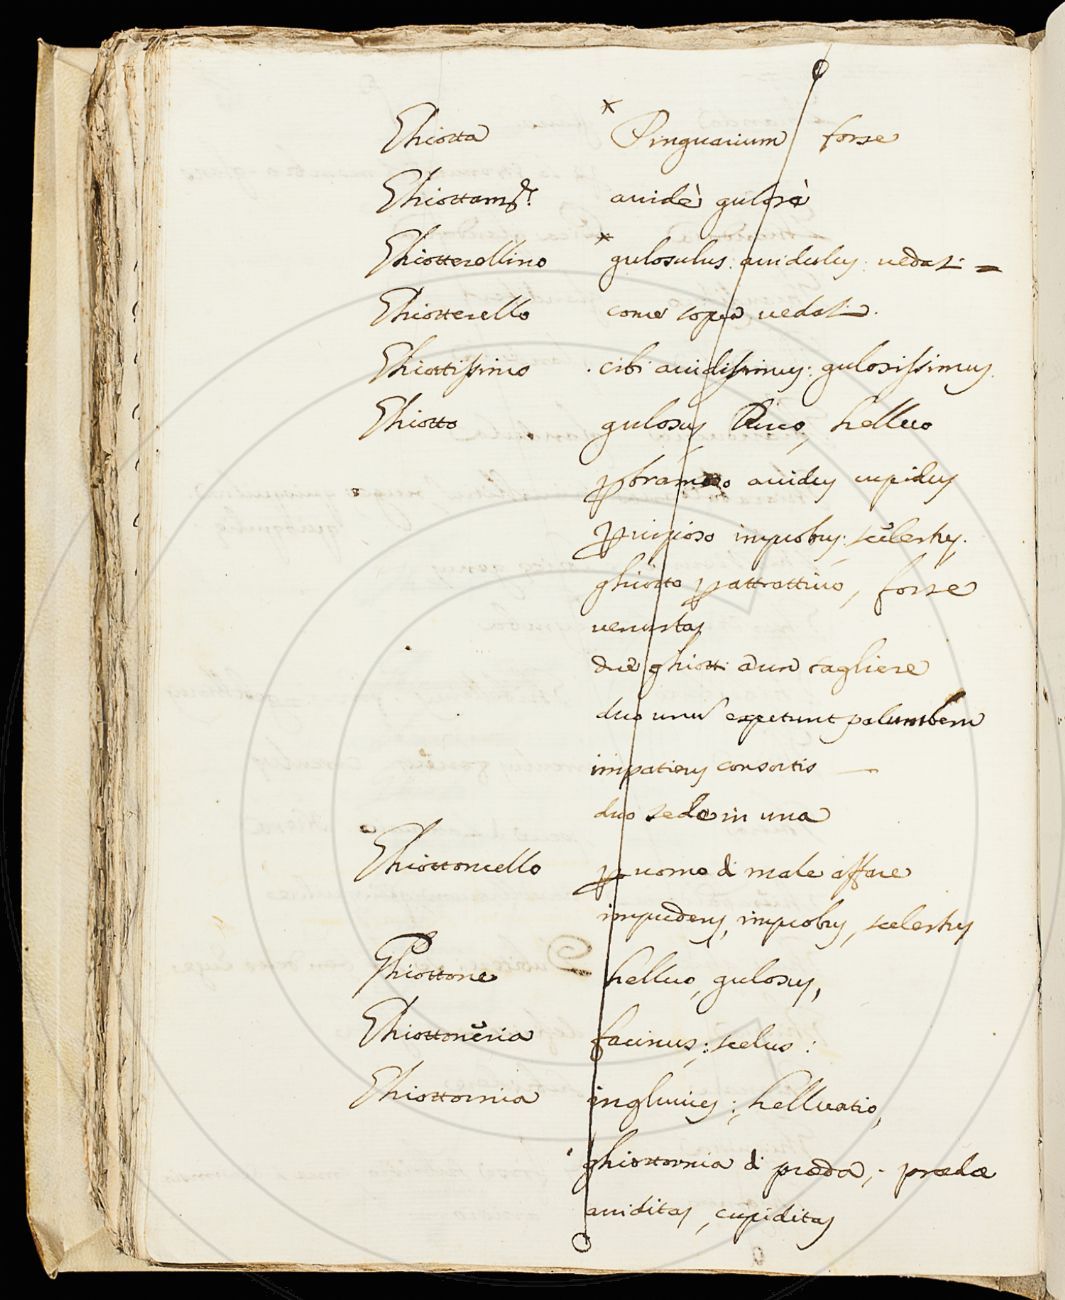 Ghiotta * Pinguarium forse
Ghiottam.te avidè gulosè
Ghiotterellino * gulosulus: avidulus: vedasi =
Ghiotterello come sopra vedasi.
Ghiottissimo . cibi avidissimus: gulosissimus.
Ghiotto gulosus, helluo
avidus cupidus
improbus: scelestus.
ghiotto p attrattivo, forse
venustas
due ghiotti a un tagliere
duo unum expetunt palumbem
impatiens consortis
duo sede in una
Ghiottoncello p uomo di male affare
impudens, improbus, scelestus
Ghiottone helluo, gulosus,
Ghiottoneria facinus: scelus:
Ghiottornia ingluvies; helluatio,
ghiottornia di preda; praedae
aviditas, cupiditas